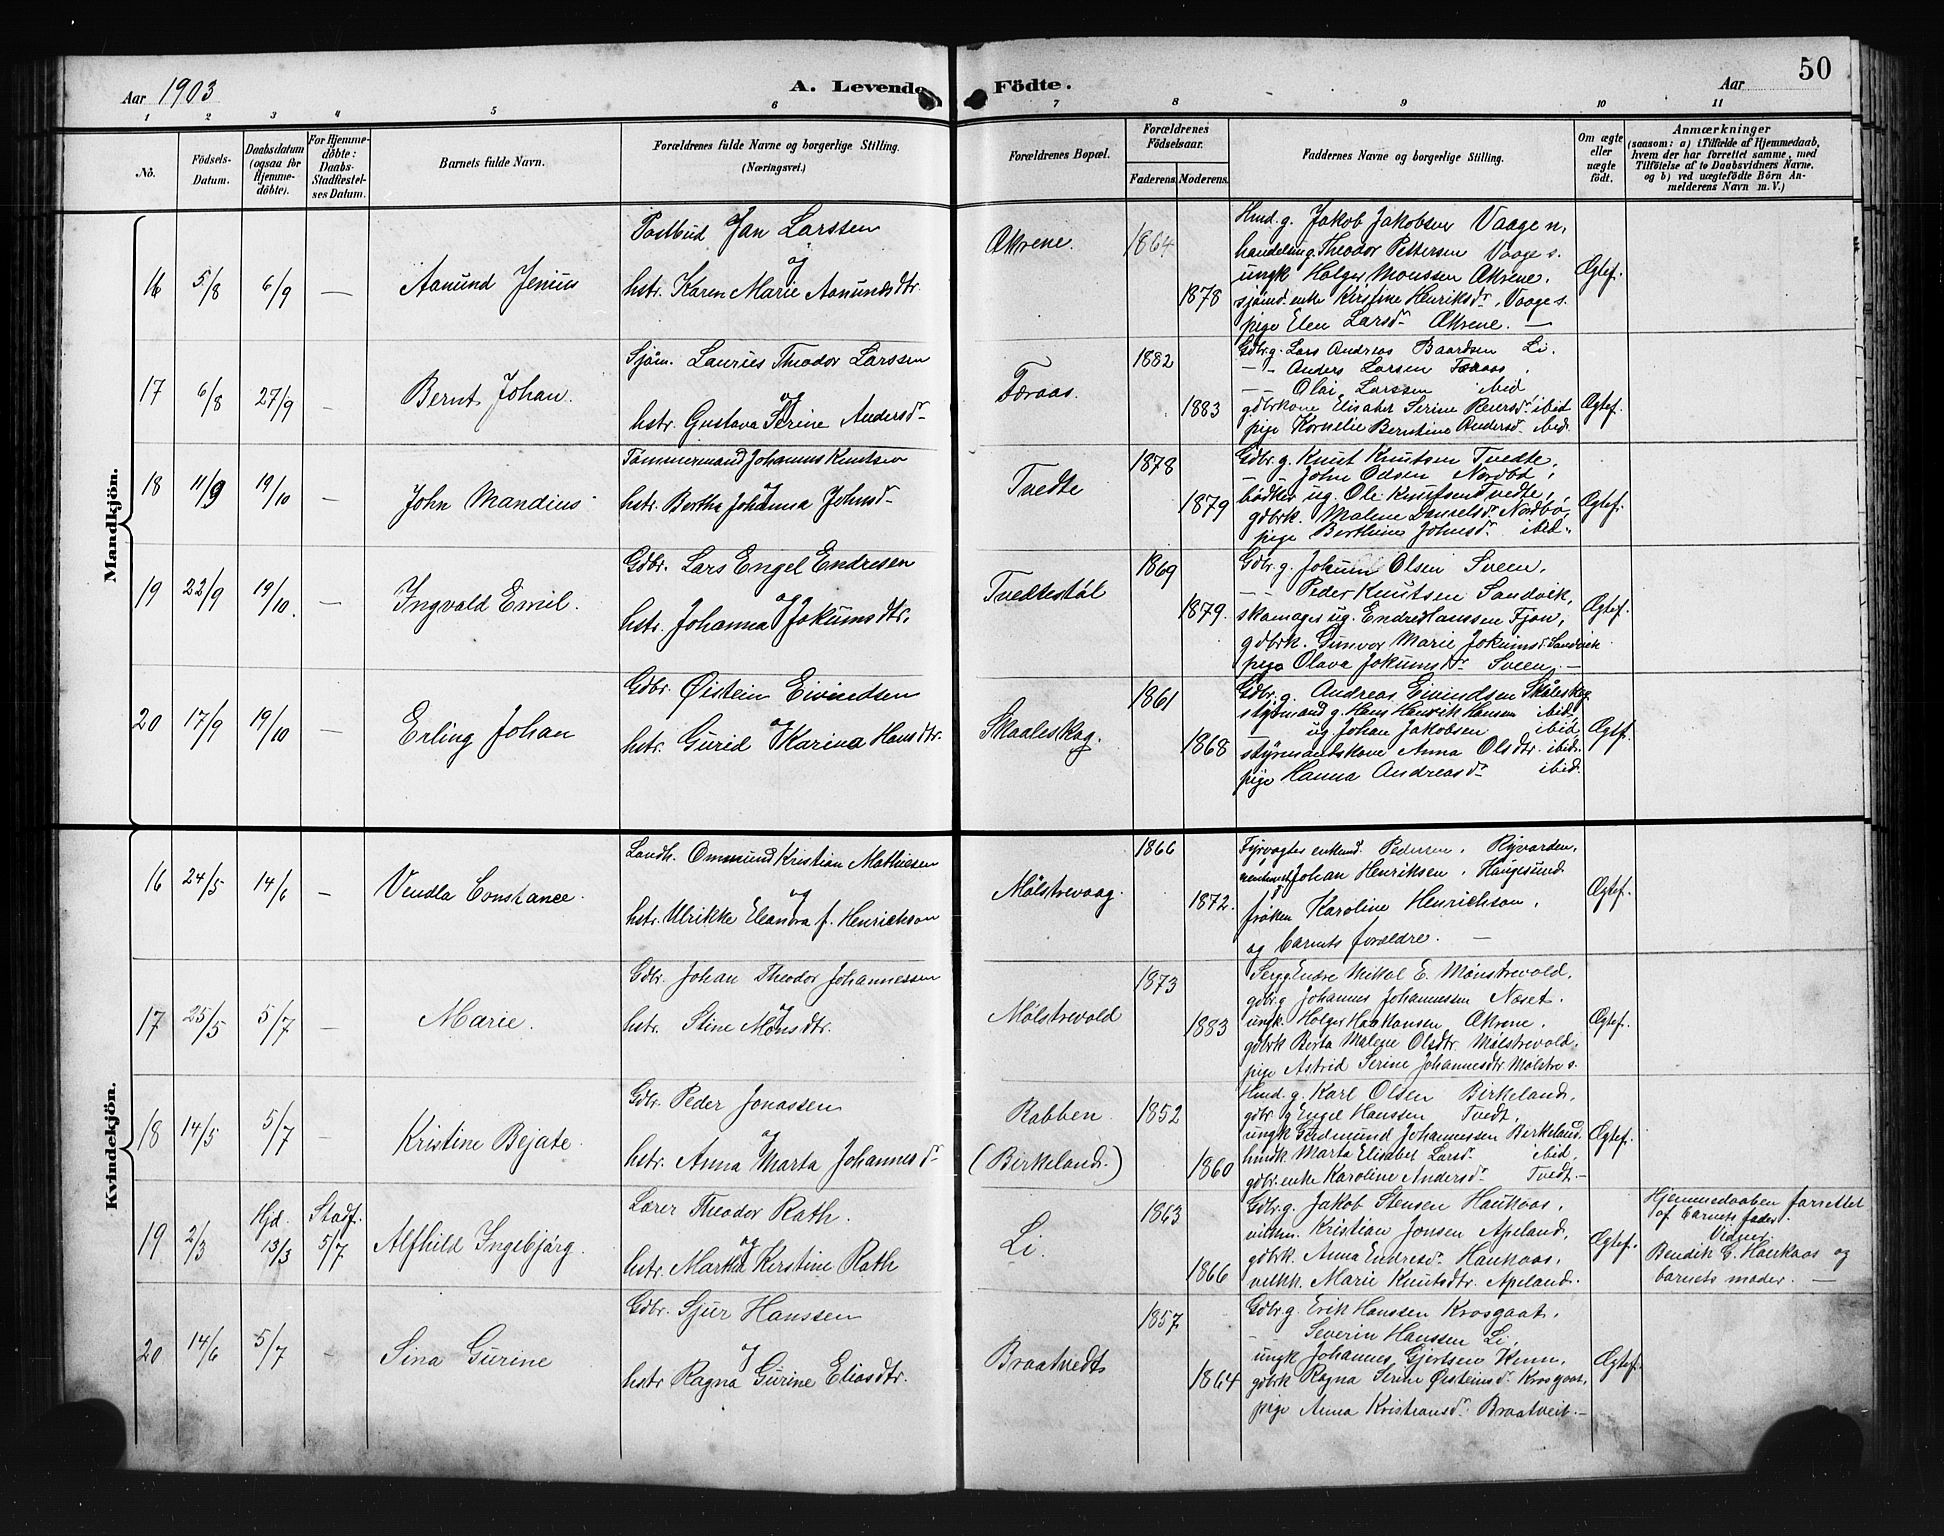 50
Aar 1903
A. Levende Födte.
Aar
1 2 3 4 5 6 7 8 9 10 11
No.
Födsels-
Datum.
Daabsdatum
(ogsaa för
Hjemme-
döbte).
For Hjemme-
döbte:
Daabs-
Stadfæstel-
ses Datum.
Barnets fulde Navn.
Forældrenes fulde Navne og borgerlige Stilling.
(Næringsvei.)
Forældrenes Bopæl.
Forældrenes
Födselsaar.
Faderens.
Moderens.
Faddernes Navne og borgerlige Stilling.
Om ægte
eller
uægte
födt.
Anmærkninger
(saasom: a) i Tilfælde af Hjemmedaab,
hvem der har forrettet samme, med
Tilföielse af to Daabsvidners Navne,
og b) ved uægtefödte Börn An-
melderens Navn m. V.)
Mandkjön.
16 5/8 6/9 — Aanund Jenius
Postbud Jan Larssen
og
hstr. Karen Marie Aanundsdtr.
Økrene. 1864 1878
Hmd. g. Jakob Jakobsen Vaage n,
handelsm g. Theodor Pettersen Vaage s.
ungk Holger Monssen Økrene.
sjömd. enke Kirstine Henriksdr. Vaage s.
pige Elen Larsdr. Økrene. —
Ægtef.
17 6/8 27/9 — Bernt Johan.
Sjöm. Laurits Theodor Larssen
og
hstr. Gustava Serine Andersdr
Færaas. 1882 1883
Gdbr. g. Lars Andreas Baardsen Li.
— - Anders Larsen Færaas,
— - Olai Larssen ibid
gdbrkone Elisabet Serine Reiersdr ibid
pige Kornelie Berntine Andersdr. ibid.
Ægtef.
18 11/9 19/10 — John Mandius
Tömmermand Johannes Knutsen
og
hstr. Bertha Johanna Johnsdr
Tvedte 1878 1879
Gdbr. g. Knut Knutsen Tvedte,
— - John Odsen Nordbö,
bödker ug. Ole Knutsen Tvedte,
gdbrk. Malene Danielsdr. Nordbö,
pige Berthine Johnsdr ibid.
Ægtef.
19 22/9 19/10. — Ingvald Emil.
Gdbr. Lars Engel Endresen
og
hstr. Johanna Jokumsdtr.
Tvedtestöl 1869 1879.
Gdbr. g. Jokum Olsen Sveen,
— - Peder Knutsen Sandvik,
skomager ug. Endre Hanssen Fjon,
gdbrk. Gunvor Marie Jokumsd. Sandvik
pige Olava Jokumsdr Sveen. —
Ægtef.
20 17/9 19/10 — Erling Johan
Gdbr. Øistein Eivindsen
og
hstr. Gurid Karina Hansdtr.
Skaaleskog. 1861 1868
Gdbr. g. Andreas Eivindsen Skåleskog
styrmand g. Hans Henrik Hansen ibid,
ug Johan Jakobsen ibid,
styrmandskone Anna Olsdtr. ibid.
pige Hanna Andreasdr ibid.
Ægtef.
Kvindekjön.
16 24/5 14/6 — Vendla Constance.
Landh. Ommund Kristian Mathiesen
og
hstr. Ulrikke Eleanora f. Henrichson
Mölstrevaag. 1866 1872.
Fyrvogter enkem. Pedersen, Ryvarden,
Johan Henriksen, Haugesund
fröken Karoline Henrichson,
og barnets forældre. —
Ægtef.
17 25/5 5/7 — Marie.
Gdbr. Johan Theodor Johannessen
og
hstr. Stine Monsdtr.
Mölstrevold 1873 1883
Serg. Endre Mikal E. Mönstrevold,
gdbr. g Johannes Johannessen Næset.
ungk. Holger Haakonsen Økrene.
gdbrk Berta Malene Olsdtr Mölstrevold,
pige Astrid Serine Johannesdtr Mölstre s.
Ægtef.
18 14/5 5/7 — Kristine Bejate.
Gdbr. Peder Jonassen
og
hstr. Anna Marta Johannesdr
Rabben
(Birkeland.) 1852 1860
Hmd. g. Karl Olsen Birkeland,
gdbr. g Engel Hanssen Tvedt,
ungk Gudmund Johannessen Birkeland.
hmdk. Marta Elisabet Larsdr ibid,
gdbr. enke Karoline Andersdr Tvedt. —
Ægtef.
19 2/3 Hjd. 13/3 Stadf. 5/7 Alfhild Ingebjörg.
Lærer Theodor Rath.
og
hstr. Martha Kirstine Rath
Li. 1863 1866
Gdbr. g. Jakob Stensen Haukaas,
Kristian Jonsen Apeland,
gdbrk. Anna Endresdr Haukaas,
Marie Knutsdtr. Apeland.
Ægtef.
Hjemmedaaben forrettet
af barnets fader.
Vidner:
Bendik G. Haukaas og
barnets moder. —
20 14/6 5/7 — Sina Gurine
Gdbr. Sjur Hanssen
og
hstr Ragna Gurine Eliasdtr.
Braatvedt 1857 1864
Gdbr. g. Erik Hanssen Krosgaat,
— Severin Hanssen Li,
ungk Johannes Gjertsen Kinn,
gdbrk Ragna Serine Øisteinsdr Krosgaat,
pige Anna Kristiansdr. Braatveit. —
Ægtef.